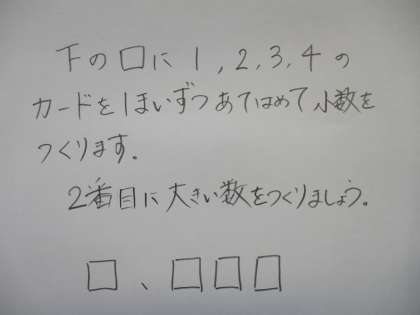 下の□に1,2,3,4の
カードを1まいずつあてはめて小数を
つくります.
2番目に大きい数をつくりましょう。
□、□□□